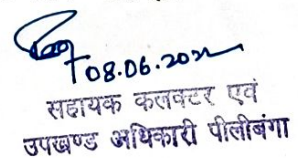 08.06.2022
सहायक कलक्टर एवं
उपखण्ड अधिकारी पीलीबंगा